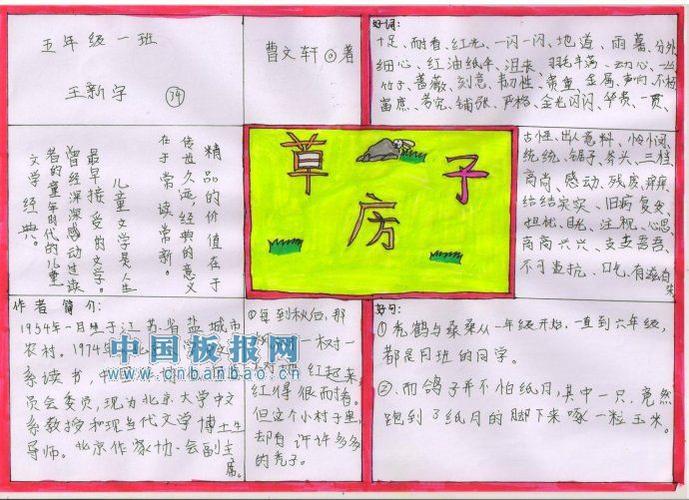 五年级一班
王新宇
74
曹文轩 著
好词:
十足、耐看、红光、一闪一闪、地道、雨幕、分外
细心、红油纸伞、泪来、羽毛丰满、动心、
竹子、蔷薇、刻意、韧性、贵重、金属、声响、不极
富庶、苦究、铺张、严格、金光闪闪、华贵、一贯、
古怪、出人意料、
统统、锯子、斧头、三栏
高尚、感动、残废、
结结实实、旧病复发
担忧、目光、注视、心思
高高兴兴、支支吾吾、
不可抵抗、口吃、有滋有味
草
房
子
精品的价值在于
传世久远,经典的意义
在于常读常新。
儿童文学是人生
最早接受的文学。
曾经深深感动过读
者的童年时代的儿童
文学经典。
作者简介:
1954年一月生于江苏省盐城市
农村。1974年
系读书,
员会委员,现为北京大学中文
系教授和现当代文学博士生
导师。北京作家协会副主
席。
①每到秋后,那
一树一
红起来
红得很耐看。
但这个小村子里,
却有许许多多
的秃子。
好句:
①秃鹤与桑桑从一年级开始,一直到六年级,
都是同班的同学。
②而鸽子并不怕纸月,其中一只,竟然
跑到了纸月的脚下来啄一粒玉米。
中国板报网
www.cnbanbao.cn